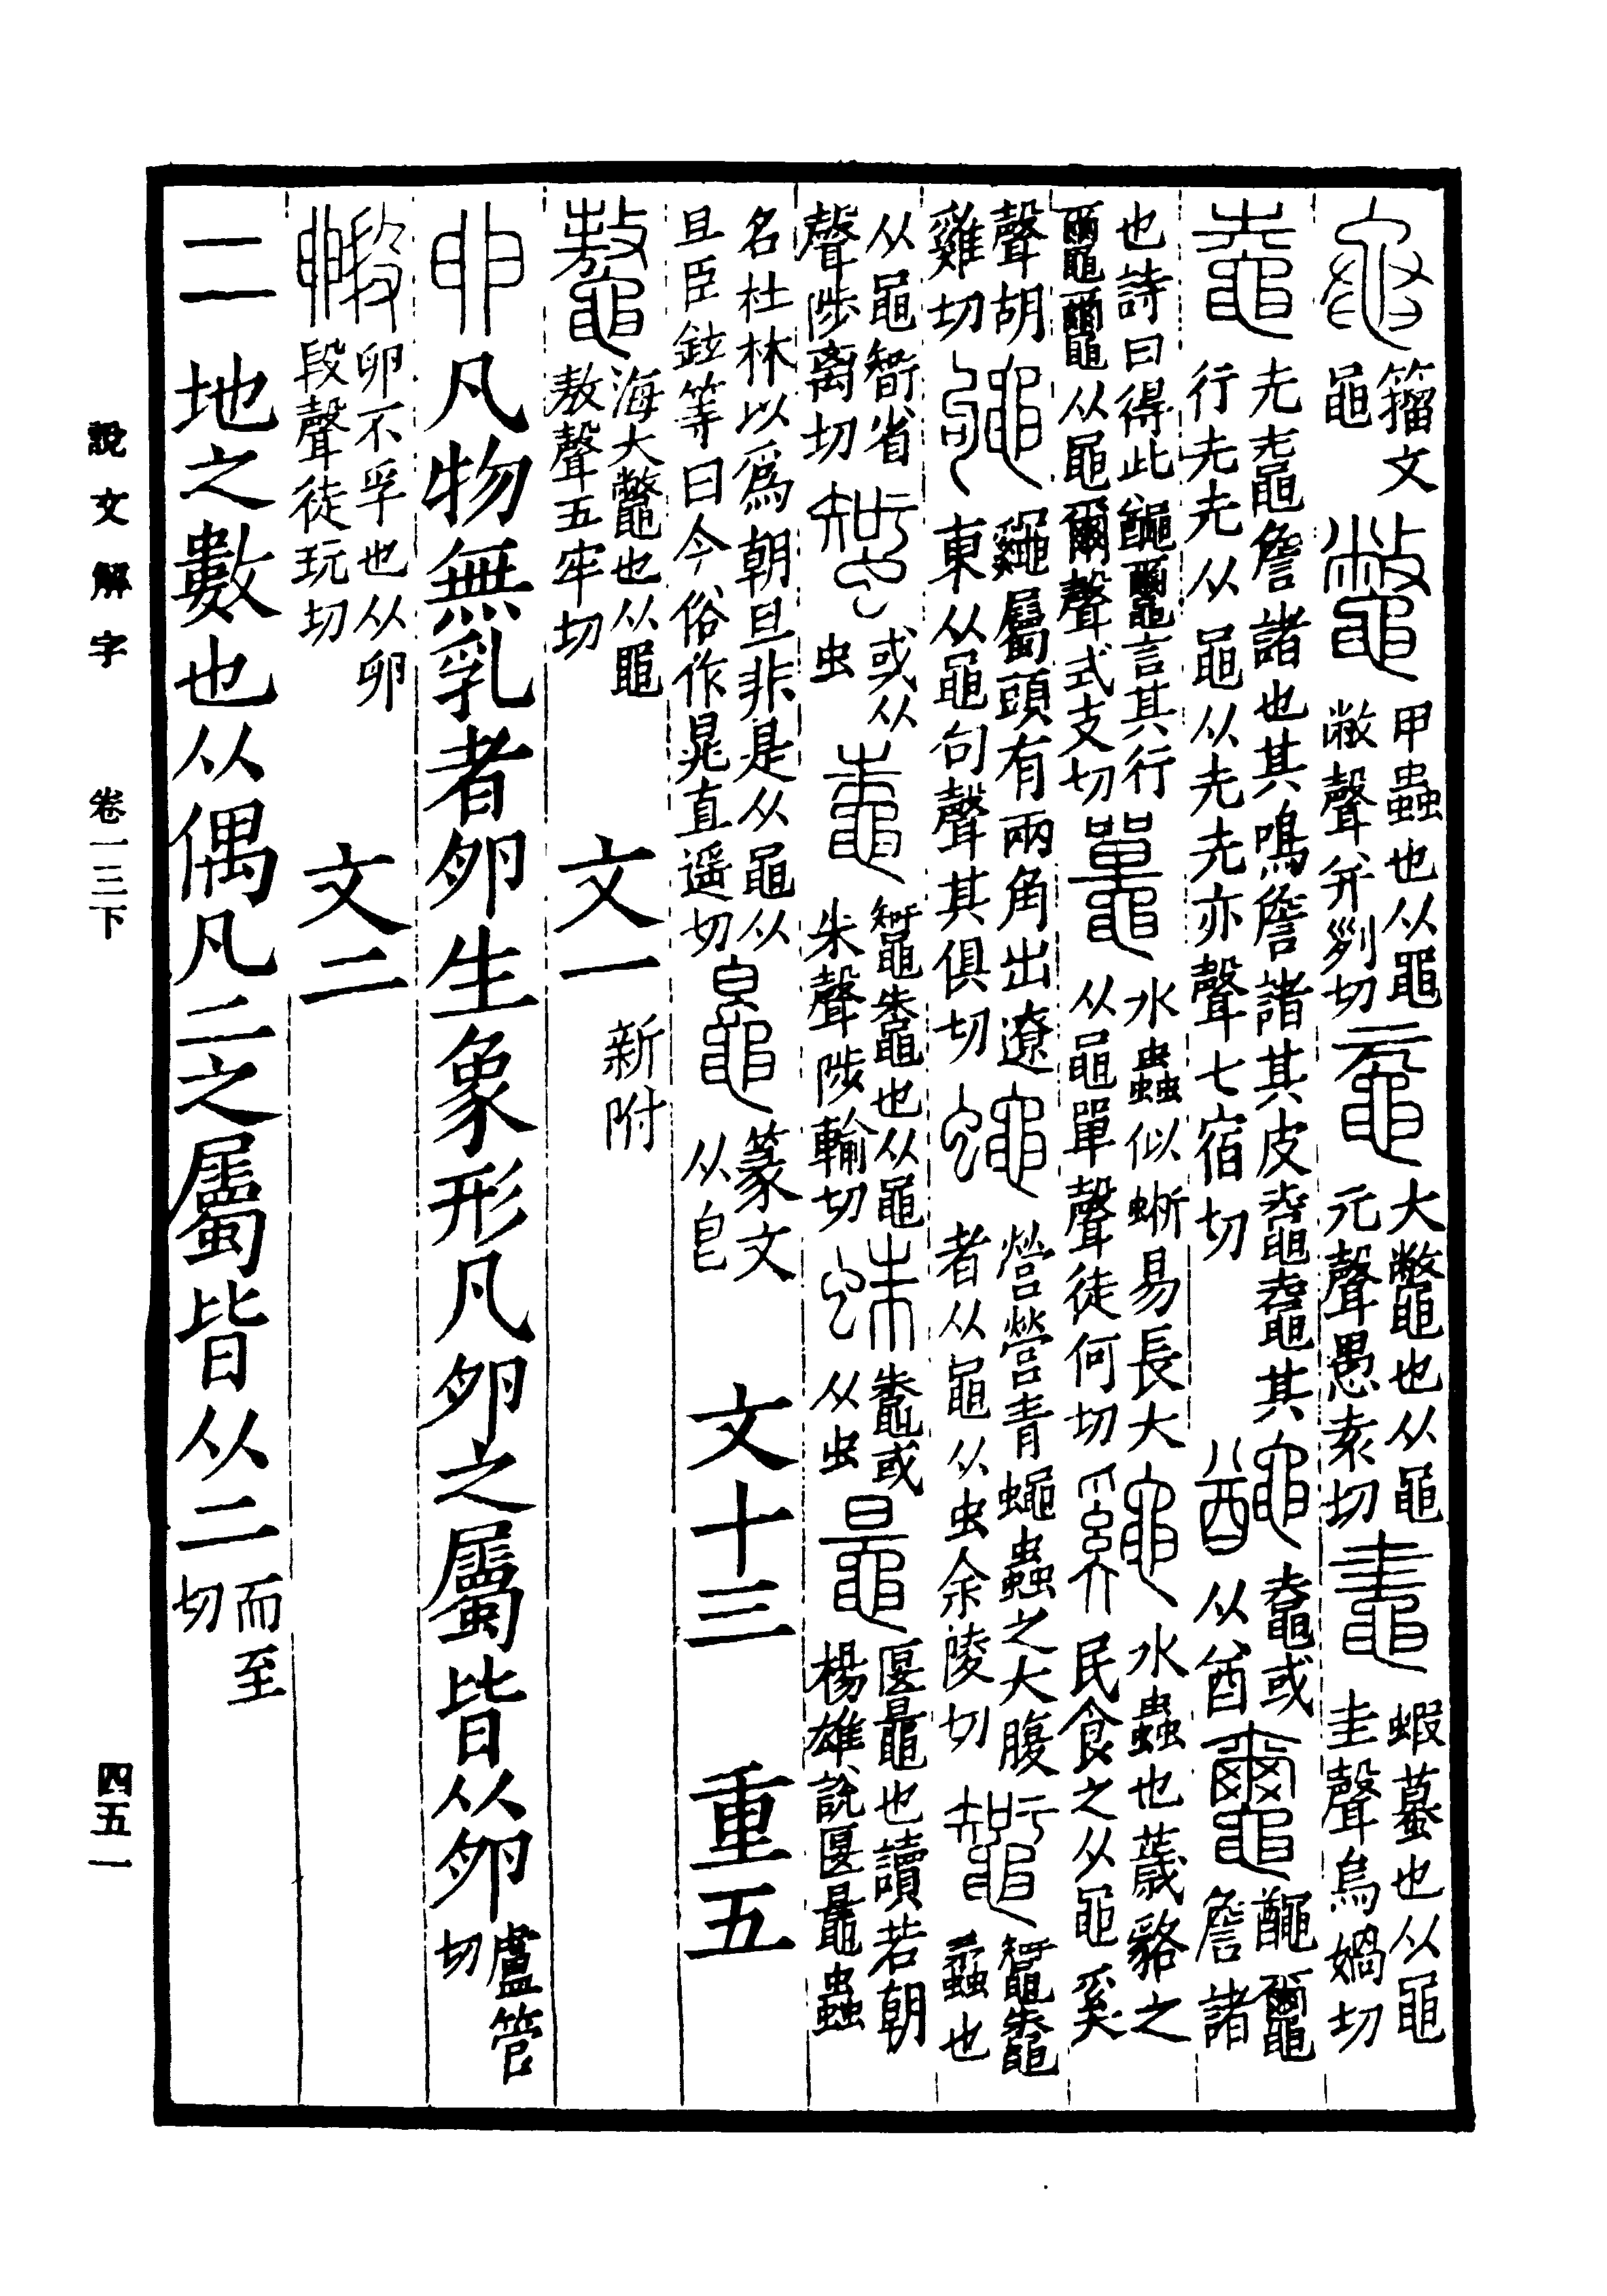 黽 籒文黽 鼈 甲蟲也从黽敝聲并列切 黿 大鼈也从黽元聲愚袁切 鼃 蝦蟇也从黽圭聲烏媧切
鼀 圥鼀詹諸也其鳴詹諸其皮鼀鼀其行圥圥从黽从圥圥亦聲七宿切 𪓰 鼀或从酋 𪓿 𪓬𪓿詹諸
也詩曰得此𪓬𪓿言其行𪓿𪓿从黽爾聲式支切 鼉 水蟲似蜥易長大从黽單聲徒何切 𪓷 水蟲也薉貉之民食之从黽奚
聲胡雞切 𪓟 𪓷屬頭有兩角出遼東从黽句聲其俱切 蠅 營營青蠅蟲之大腹者从黽从虫余陵切 鼅 鼅鼄蟊也
从黽智省聲陟离切 或从虫 鼄 鼅鼄也从黽朱聲陟輸切 蛛 鼄或从虫 鼂 匽鼂也讀若朝楊雄說匽鼂蟲
名杜林以爲朝旦非是从黽从旦臣鉉等曰今俗作晁直遥切 篆文从皀 文十三 重五
鼇 海大鼈也从黽敖聲五牢切 文一 新附
卵 凡物無乳者卵生象形凡卵之屬皆从卵 盧管切
毈 卵不孚也从卵段聲徒玩切 文二
二 地之數也从偶凡二之屬皆从二 而至切
說文解字 卷一三下 四五一